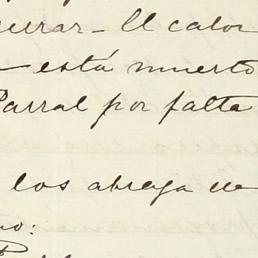 urrar - El calor
está muerto
Parral por falta
los abraza un
no: